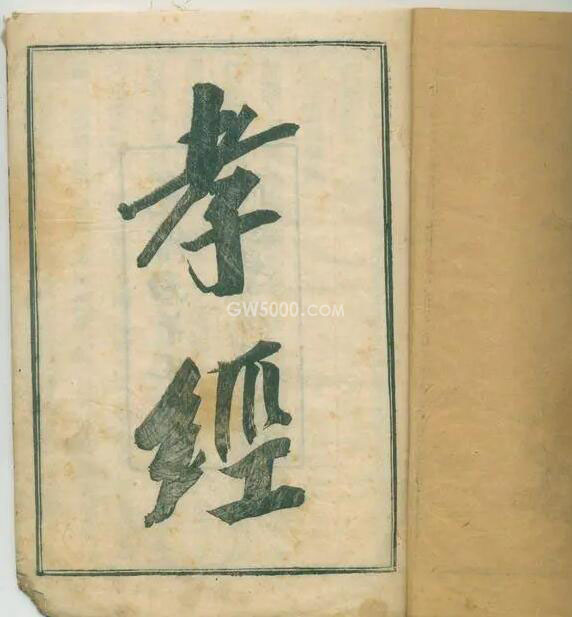 孝經
GW5000.COM